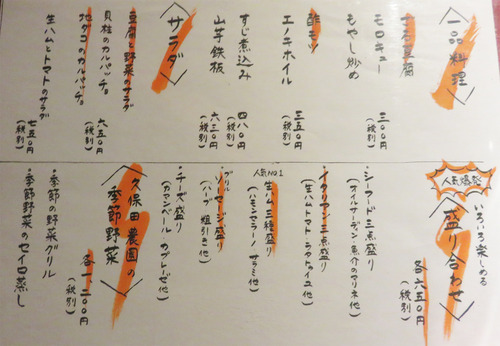 〈一品料理〉
モロキュー
もやし炒め
三〇〇円
(税別)
酢モツ
エノキホイル
三五〇円
(税別)
すじ煮込み
四八〇円
(税別)
山芋鉄板
六三〇円
(税別)
〈サラダ〉
豆腐と野菜のサラダ
貝柱のカルパッチョ
地ダコのカルパッチョ
六五〇円
(税別)
生ハムとトマトのサラダ
七五〇円
(税別)
人気爆発
いろいろ楽しめる
〈盛り合わせ〉
各六五〇円
(税別)
・シーフード三点盛り
(オイルサーデン 魚介のマリネ他)
・イタリアン三点盛り
(生ハムトマト ラタトゥイユ他)
人気NO1
・生ハム三種盛り
(ハモンセラーノ サラミ他)
・ソーセージ盛り
(ハーブ 粗引き他)
・チーズ盛り
(カマンベール カプレーゼ他)
〈久保田農園の
季節野菜〉
各一二〇〇円
(税別)
・季節の野菜グリル
・季節野菜のセイロ蒸し